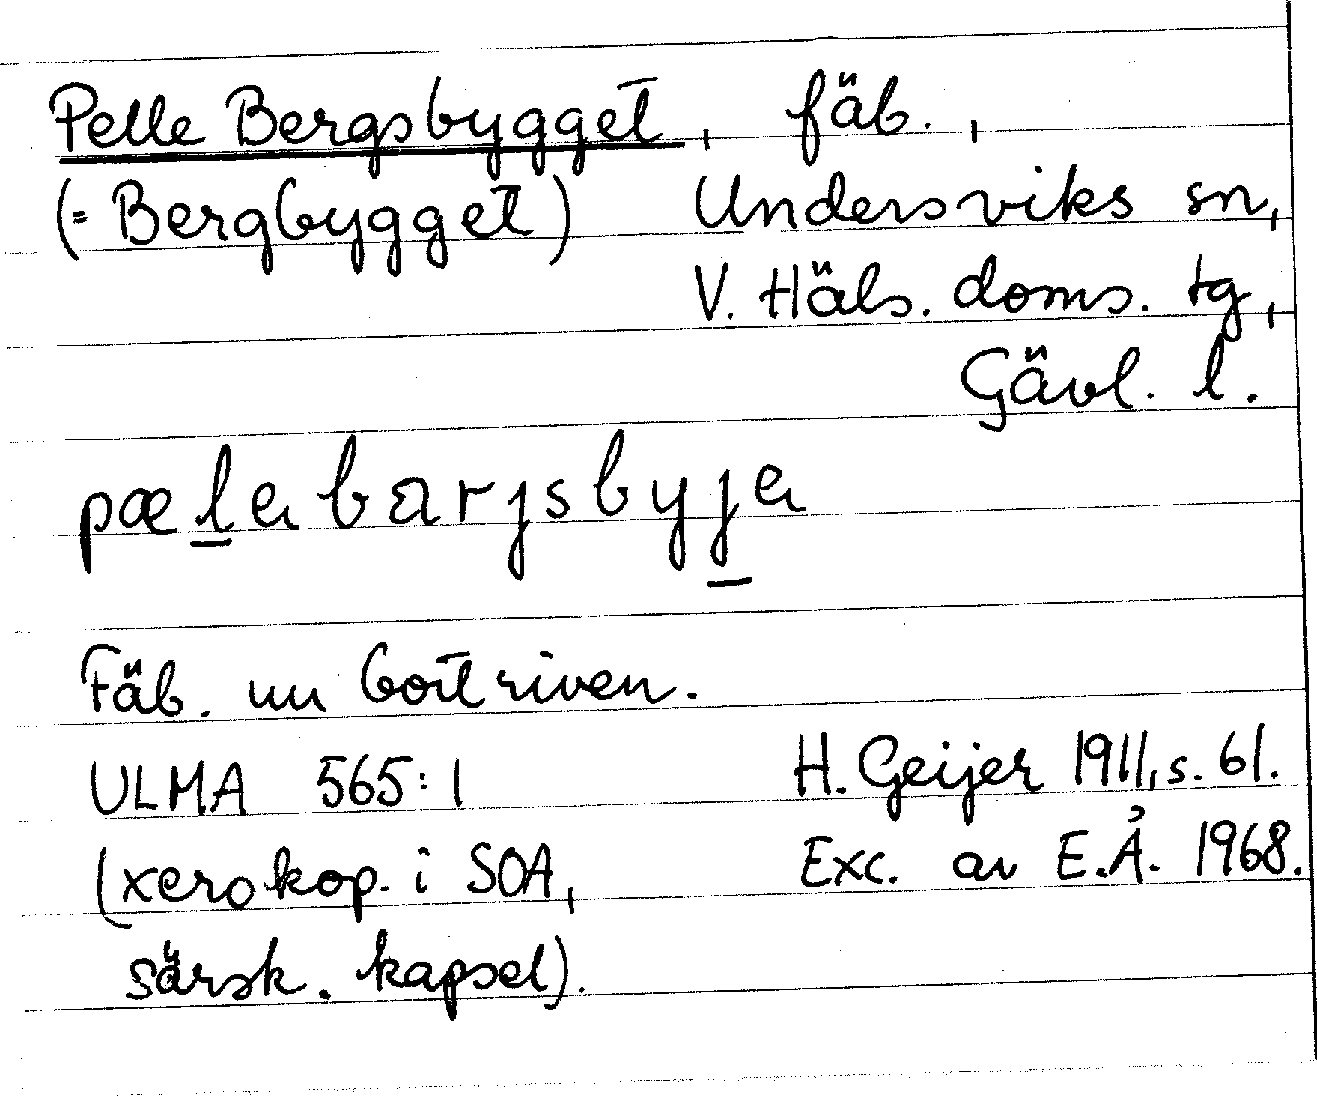 Pelle Bergsbygget, fäb.,
(= Bergbygget) Undersviks sn,
V. Häls. doms. tg,
Gävl. l.
pælabarjsbyja
Fäb. nu bortriven.
ULMA 565:1 H. Geijer 1911, s. 61.
(xerokop. i SOA, Exc. av E.Å. 1968.
särsk. kapsel).